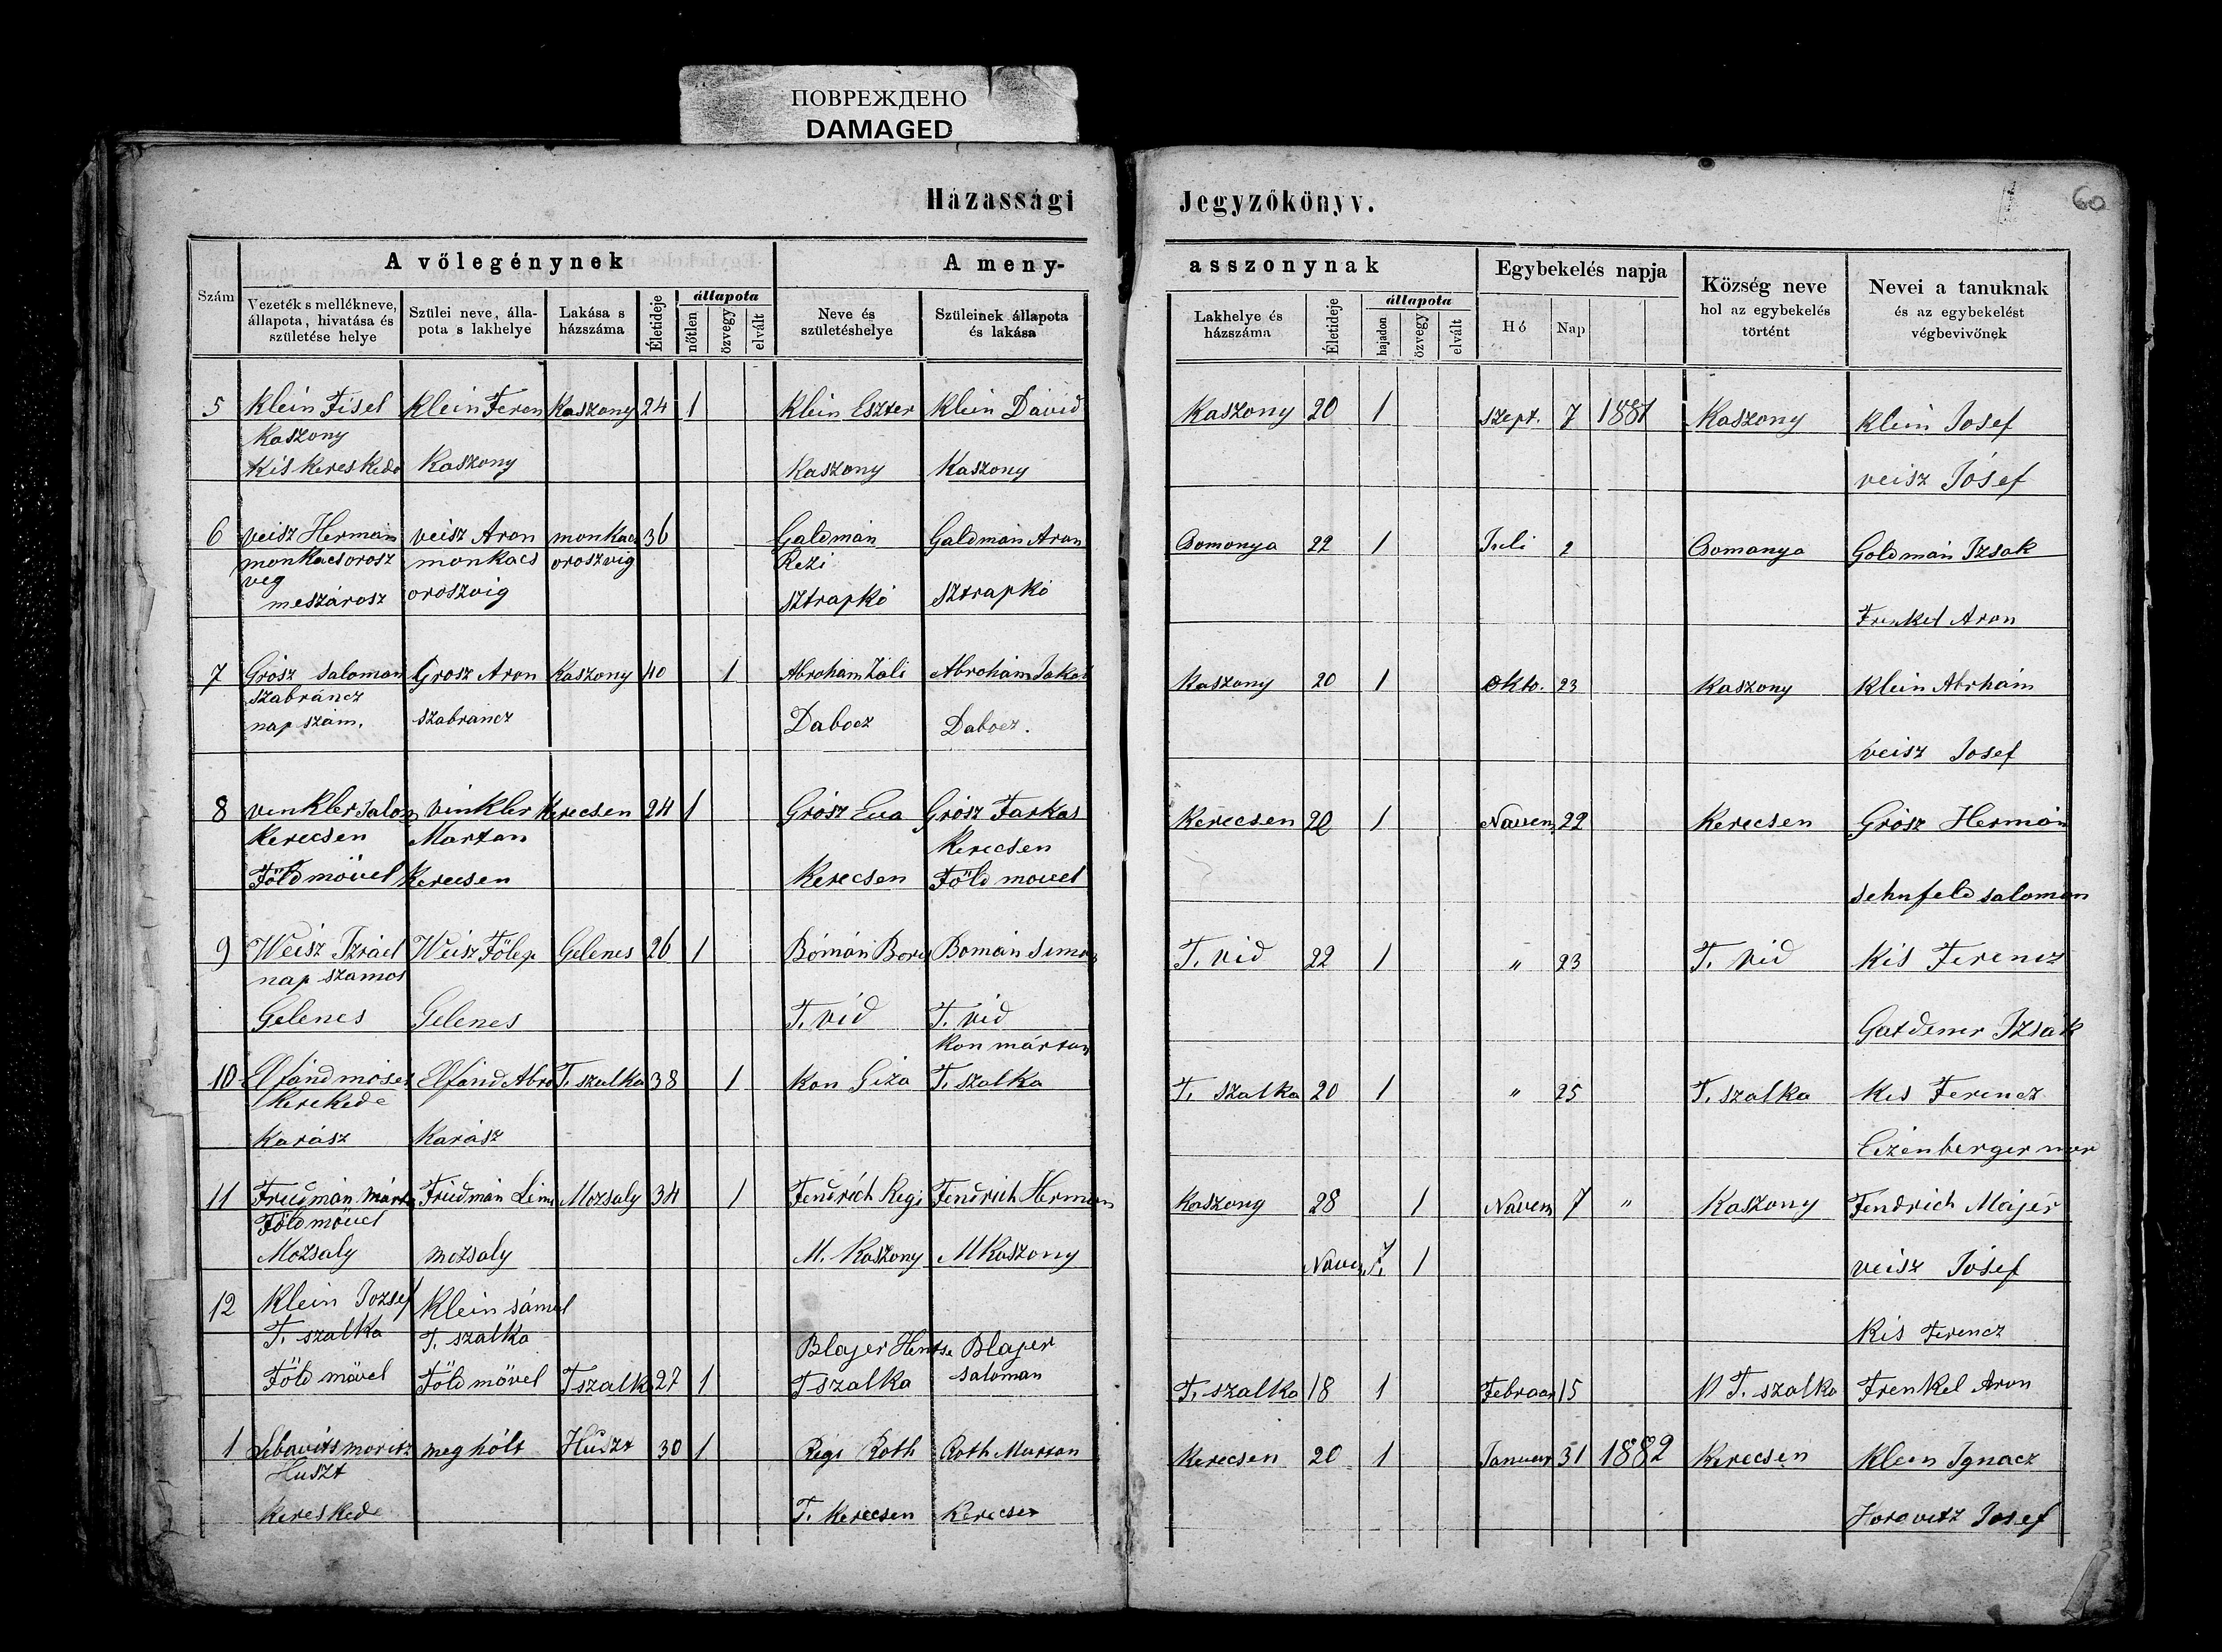 ПОВРЕЖДЕНО
DAMAGED
Házassági Jegyzőkönyv.
60
Szám
A vőlegénynek
Vezeték s mellékneve, állapota, hivatása és születése helye
Szülei neve, állapota s lakhelye
Lakása s házszáma
Életideje
állapota
nőtlen
özvegy
elvált
A menyasszonynak
Neve és születéshelye
Szüleinek állapota és lakása
Lakhelye és házszáma
Életideje
állapota
hajadon
özvegy
elvált
Egybekelés napja
Hó
Nap
Község neve hol az egybekelés történt
Nevei a tanuknak és az egybekelést végbevivőnek
5 Klein Fisel Klein Feren Kaszony 24 1 Klein Eszter Klein David Kaszony 20 1 Szept. 7 1881 Kaszony Klein Josef
Kaszony
Kis Kereskedo Kaszony Kaszony Kaszony veisz Jósef
6 veisz Herman veisz Aron monkacs 36 Galdmán Galdman Aron Csomonya 22 1 Juli 2 Csomanya Goldmán Izsak
monkacsorosz monkacs oroszvig Rezi
veg
meszárosz oroszvig sztrapkó sztrapkó Frenkel Aron
7 Grósz Saloman Grosz Aron Kaszony 40 1 Abroham Záli Abrohám Jakab Kaszony 20 1 Okto. 23 Kaszony Klein Abrhám
szabráncz
nap szám. szabrancz Dabocz Dabocz. veisz Josef
8 venkler Salom vinkler Kerecsen 24 1 Grósz Eva Grósz Farkas Kerecsen 20 1 Novem 22 Kerecsen Grósz Hermán
Kerecsen Martan Kerecsen
Föld mövel Kerecsen Kerecsen Föld movel Sehnfeld saloman
9 Weisz Izráel Weisz Fölep Gelenes 26 1 Bómán Bori Bomán Simon T. vid 22 1 " 23 T. vid Kis Ferencz
nap szamos
Gelenes Gelenes T. vid T. vid Izsák
Kon márton
10 Elfánd móses Elfánd Abro T. szalka 38 1 Kon Giza T. szalka T. szalka 20 1 " 25 T. szalka Kis Ferencz
Kerekede
Karász Karász Eizenberger mor
11 Friedmán márto Friedmán Mozsaly 34 1 Fendrich Regi Fendrich Herman Kaszony 28 1 Navem 7 " Kaszony Fendrich Májer
Föld mövel
Mozsaly mozsaly M. Kaszony M Kaszony Navem 7. 1 veisz Jósef
12 Klein Jozsef Klein sámuel
T. szalka T. szalka Blajer Hentse Blajer Kis Ferencz
Föld mövel Föld mövel T szalka 27 1 T szalka saloman T. szalka 18 1 Februar 15 T. szalka Frenkel Aron
1 Lebavits moritz meg hólt Huszt 30 1 Regi Roth Roth Marton Kerecsen 20 1 Januar 31 1882 Kerecsen Klein Ignacz
Huszt
kereskede T. Kerecsen Kerecsen Horovitz Josef